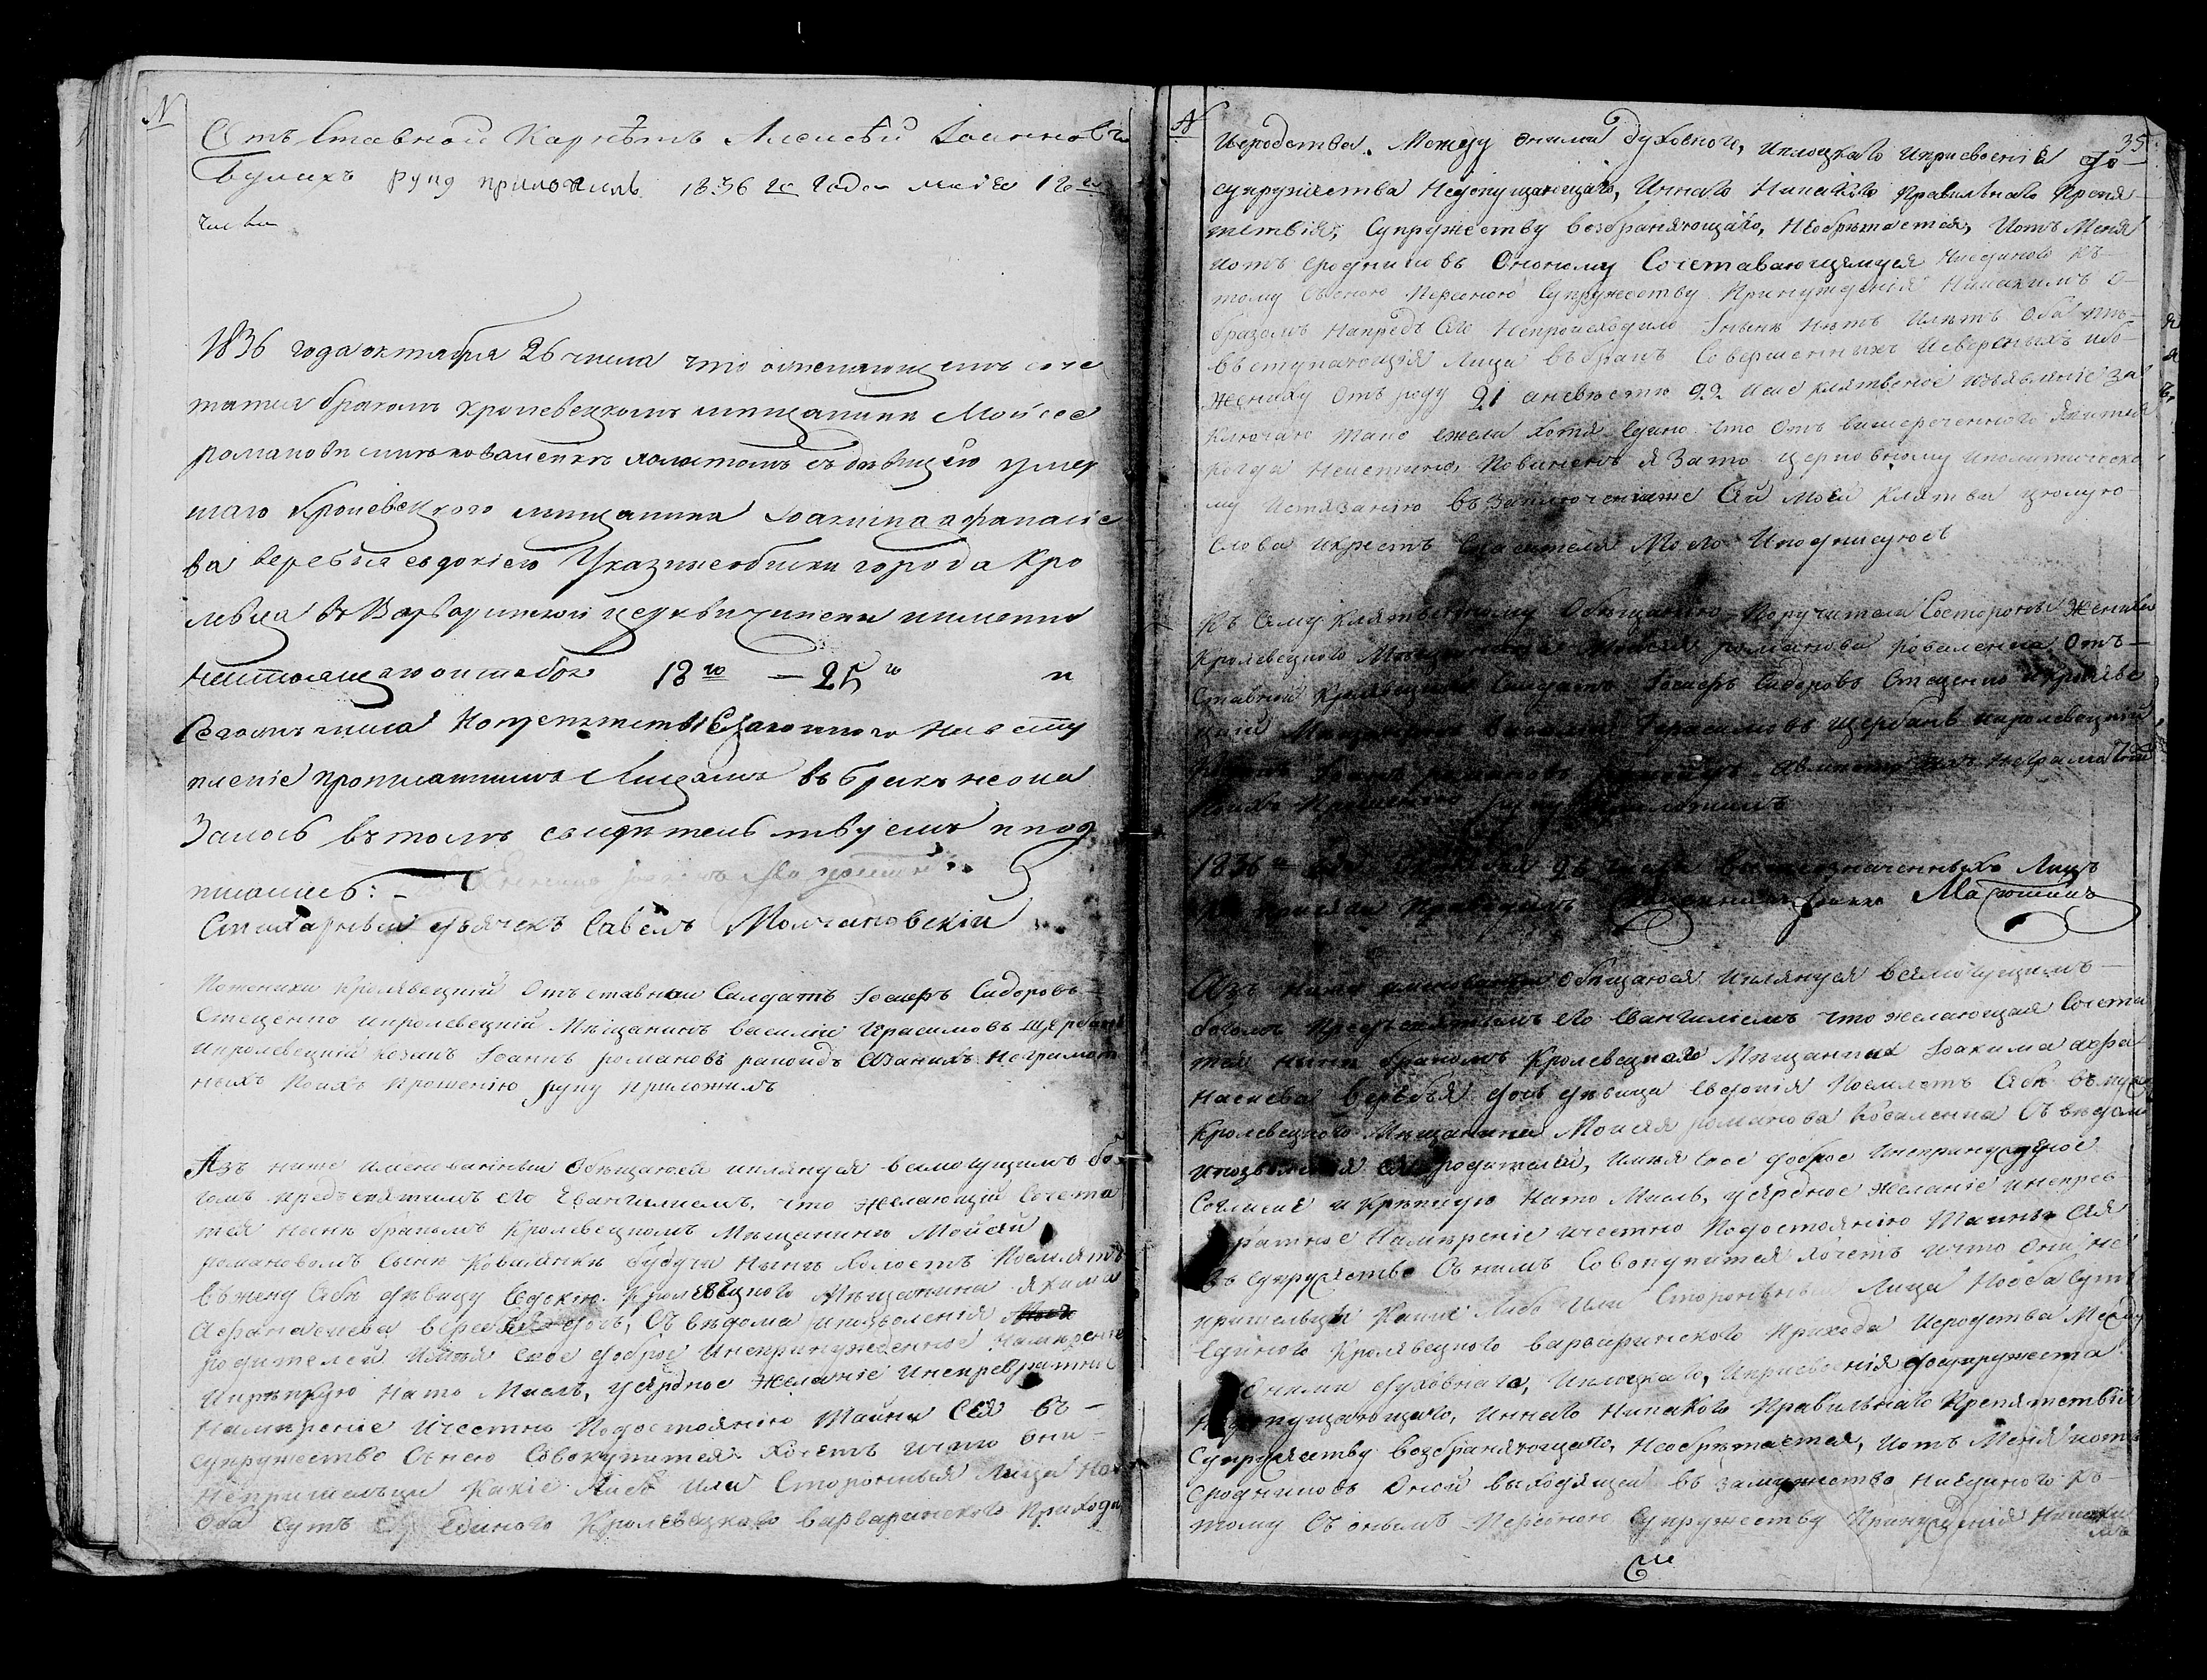 N
Отъ ставной Карнетъ Алексѣй Іоанновъ
Булихъ руку приложилъ 1836 го Года маія 16 го
числа
1836 года октября 26 числа что о желающемъ соче
татся бракомъ кролевецкомъ мищанини Мойсее
романови сини коваленки холостомъ съ дѣвицею умер
шаго кролевецкого мищанина Іоакима афанасіе
ва веребія евдокіею Указние обиски города Кро
левца въ Варваринской церкви чинени именно
настоящаго октября 18 го — 25 го и
сегожъ числа Но препятствія законнаго на всту
пленіе прописаннимъ Лицамъ въ бракъ неока
залось въ томъ свидителствуемъ и под
писались: –
Стихарный дьячекъ Савелъ Молчановскій
По жениху кролевецкій Отъ ставный Салдатъ Іосифъ Сидоровъ
Стеценко икролевецкій Мѣщанинъ василій Герасимовъ щербакъ
икролевецкій козакъ Іоаннъ романовъ авзанихъ Неграмот
ныхъ Поихъ Прошенію руку приложилъ
Азъ ниже именованный Обѣщаюся иклянуся всемогущимъ бо
гомъ предъ святымъ его Евангилиемъ, что желающій Сочета
тся нынѣ бракомъ Кролевецкомъ Мѣщанинѣ Мойсей
романовомъ сынѣ Ковалѣнкѣ будучи нынѣ холостъ Поемлетъ
въ жену себѣ дѣвицу Евдокію Кролевецкого Мѣщанина якима
Афанасиева веребія дочь, Съ вѣдома ипозволенія
родителей имѣя свое доброе инепринужденное Намѣреніе
икрѣпкую на то Мысль, усердное желаніе инепревратное
намѣреніе ичестнѣ Подостоянію Тайны Сея въ –
супружество Съ нею Совокупится хочетъ ичто они –
непришельцы какіе либо или Стороннѣя Лица но
Оба суть единого Кролевецкаго варваринского Прихода
N
35
исродства. Между оными духовнаго, иплоцкаго иприсвоенія до –
супружества недопущающаго, иннаго Никакого Правильнаго Препя
тствія, Супружеству возбраняющаго, необрѣтается, иотъ Меня
иотъ сродниковъ Оному Сочетавающемуся ниединого къ –
тому Съ оною Персоною Супружеству Принужденія Никакимъ о –
бразомъ напредъ Сего Непроисходило инынѣ нѣтъ илѣтъ оба тѣ –
вступающія Лица въбракъ Совершенныхъ иверныхъ ибо –
жениху Отъ роду 21 аневѣсте 22 исіе клятвеное изъявленіе за
ключаю тако ежели хотя едино что Отъ вишереченного явится
когда Неистинно, Повиненъ я Зато церковному иполитическо
му истязанію въ заключениеже Сей моей Клятвы цюлую
Слова икрестъ Спасителя Моего Иподписуюсъ
Къ Сему Клятвенному Обѣщанію Поручители Состороны Жениха
Кролевецкого Мѣщанина Моисея романова коваленка Отъ –
Ставный Кролевецкій Салдатъ Іосифъ Сидоровъ Стеценко икролеве
цкій Мѣщанинъ василій Герасимовъ щербакъ икролевецкій
Іоаннъ романовъ авместо ихъ неграмотныхъ
Поихъ Прошенію руку приложилъ
1836 го 26 числа вышеозначенныхъ Лицъ
Приводилъ Священникъ Іоаннъ Матюшинъ
Азъ ниже именованный Обѣщаюся иклянуся всемогущимъ –
богомъ Предъ святымъ его Евангилиемъ что желающая Сочета
тся нынѣ бракомъ Кролевецкаго Мѣщанина Іоакима афа
насиева веребія дочь дѣвица евдокія Поемлетъ Себѣ въ мужа
Кролевецкого Мѣщанина Моисея романова Коваленка Съ вѣдома
ипозволенія своихъ родителей, имѣя свое доброе инепринужденое
Согласие икрѣпкую на то Мысль, усердное желаніе инепрев
ратное Намѣреніе ичестно Подостоянію Тайны Сея
въ супружество Съ нимъ Совокупится хочетъ ичто они не
пришельцы какіе либо или Стороннѣя Лица Нооба суть
единого Кролевецкого варваринского прихода исродства Между
оными духовнаго, иплоцкаго, иприсвоенія досупружества
недопущающаго, иннаго Никакого Правильнаго Препятствія
Супружеству возбраняющаго, необрѣтается, иотъ Меня иотъ
сродниковъ Оной выходящей въ замужество ниединого къ –
тому Съ онымъ Персоною Супружеству Принужденія Никаки
мъ